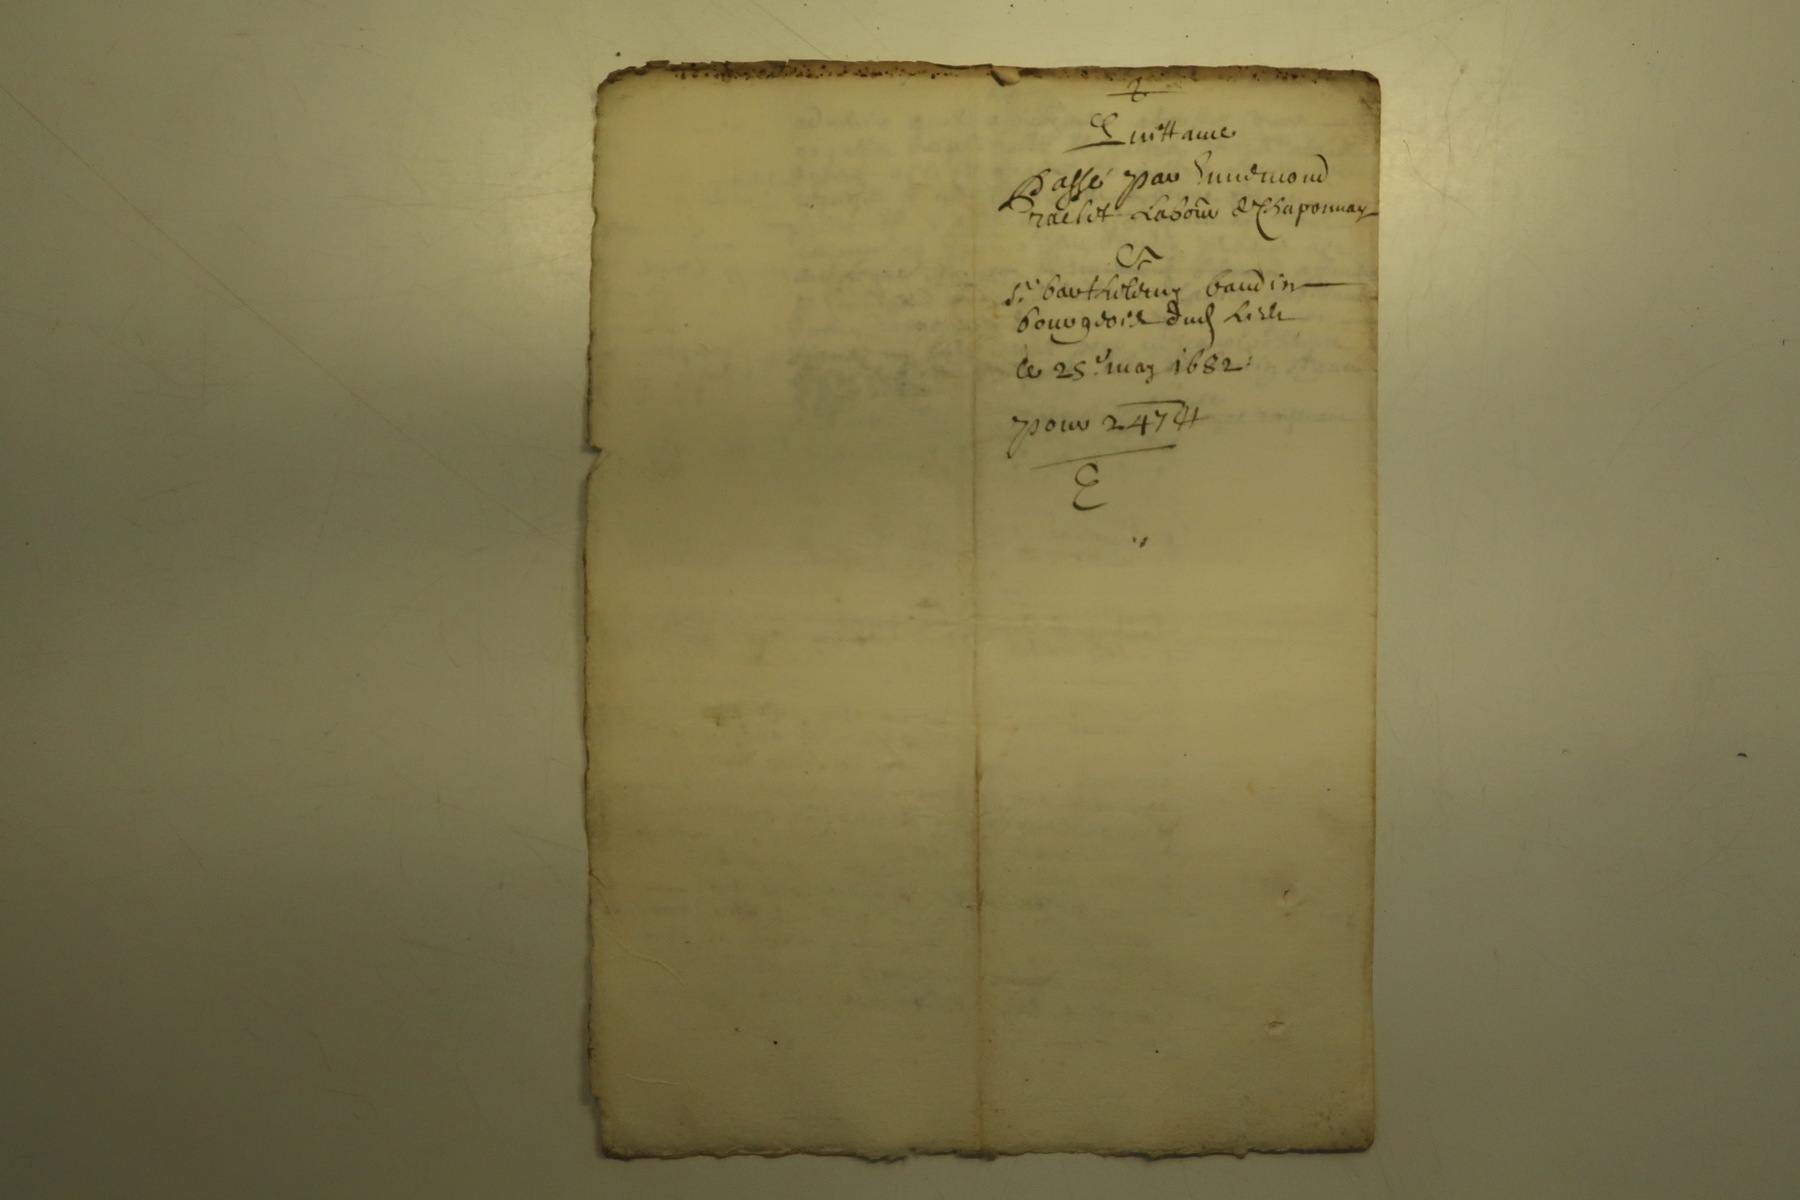 Quittance
Passé par Ennemond
raclet Labour de Chaponnay
A
Sr barthelemy baudin
bourgeois dud
le 25e may 1682
pour 247 ₶